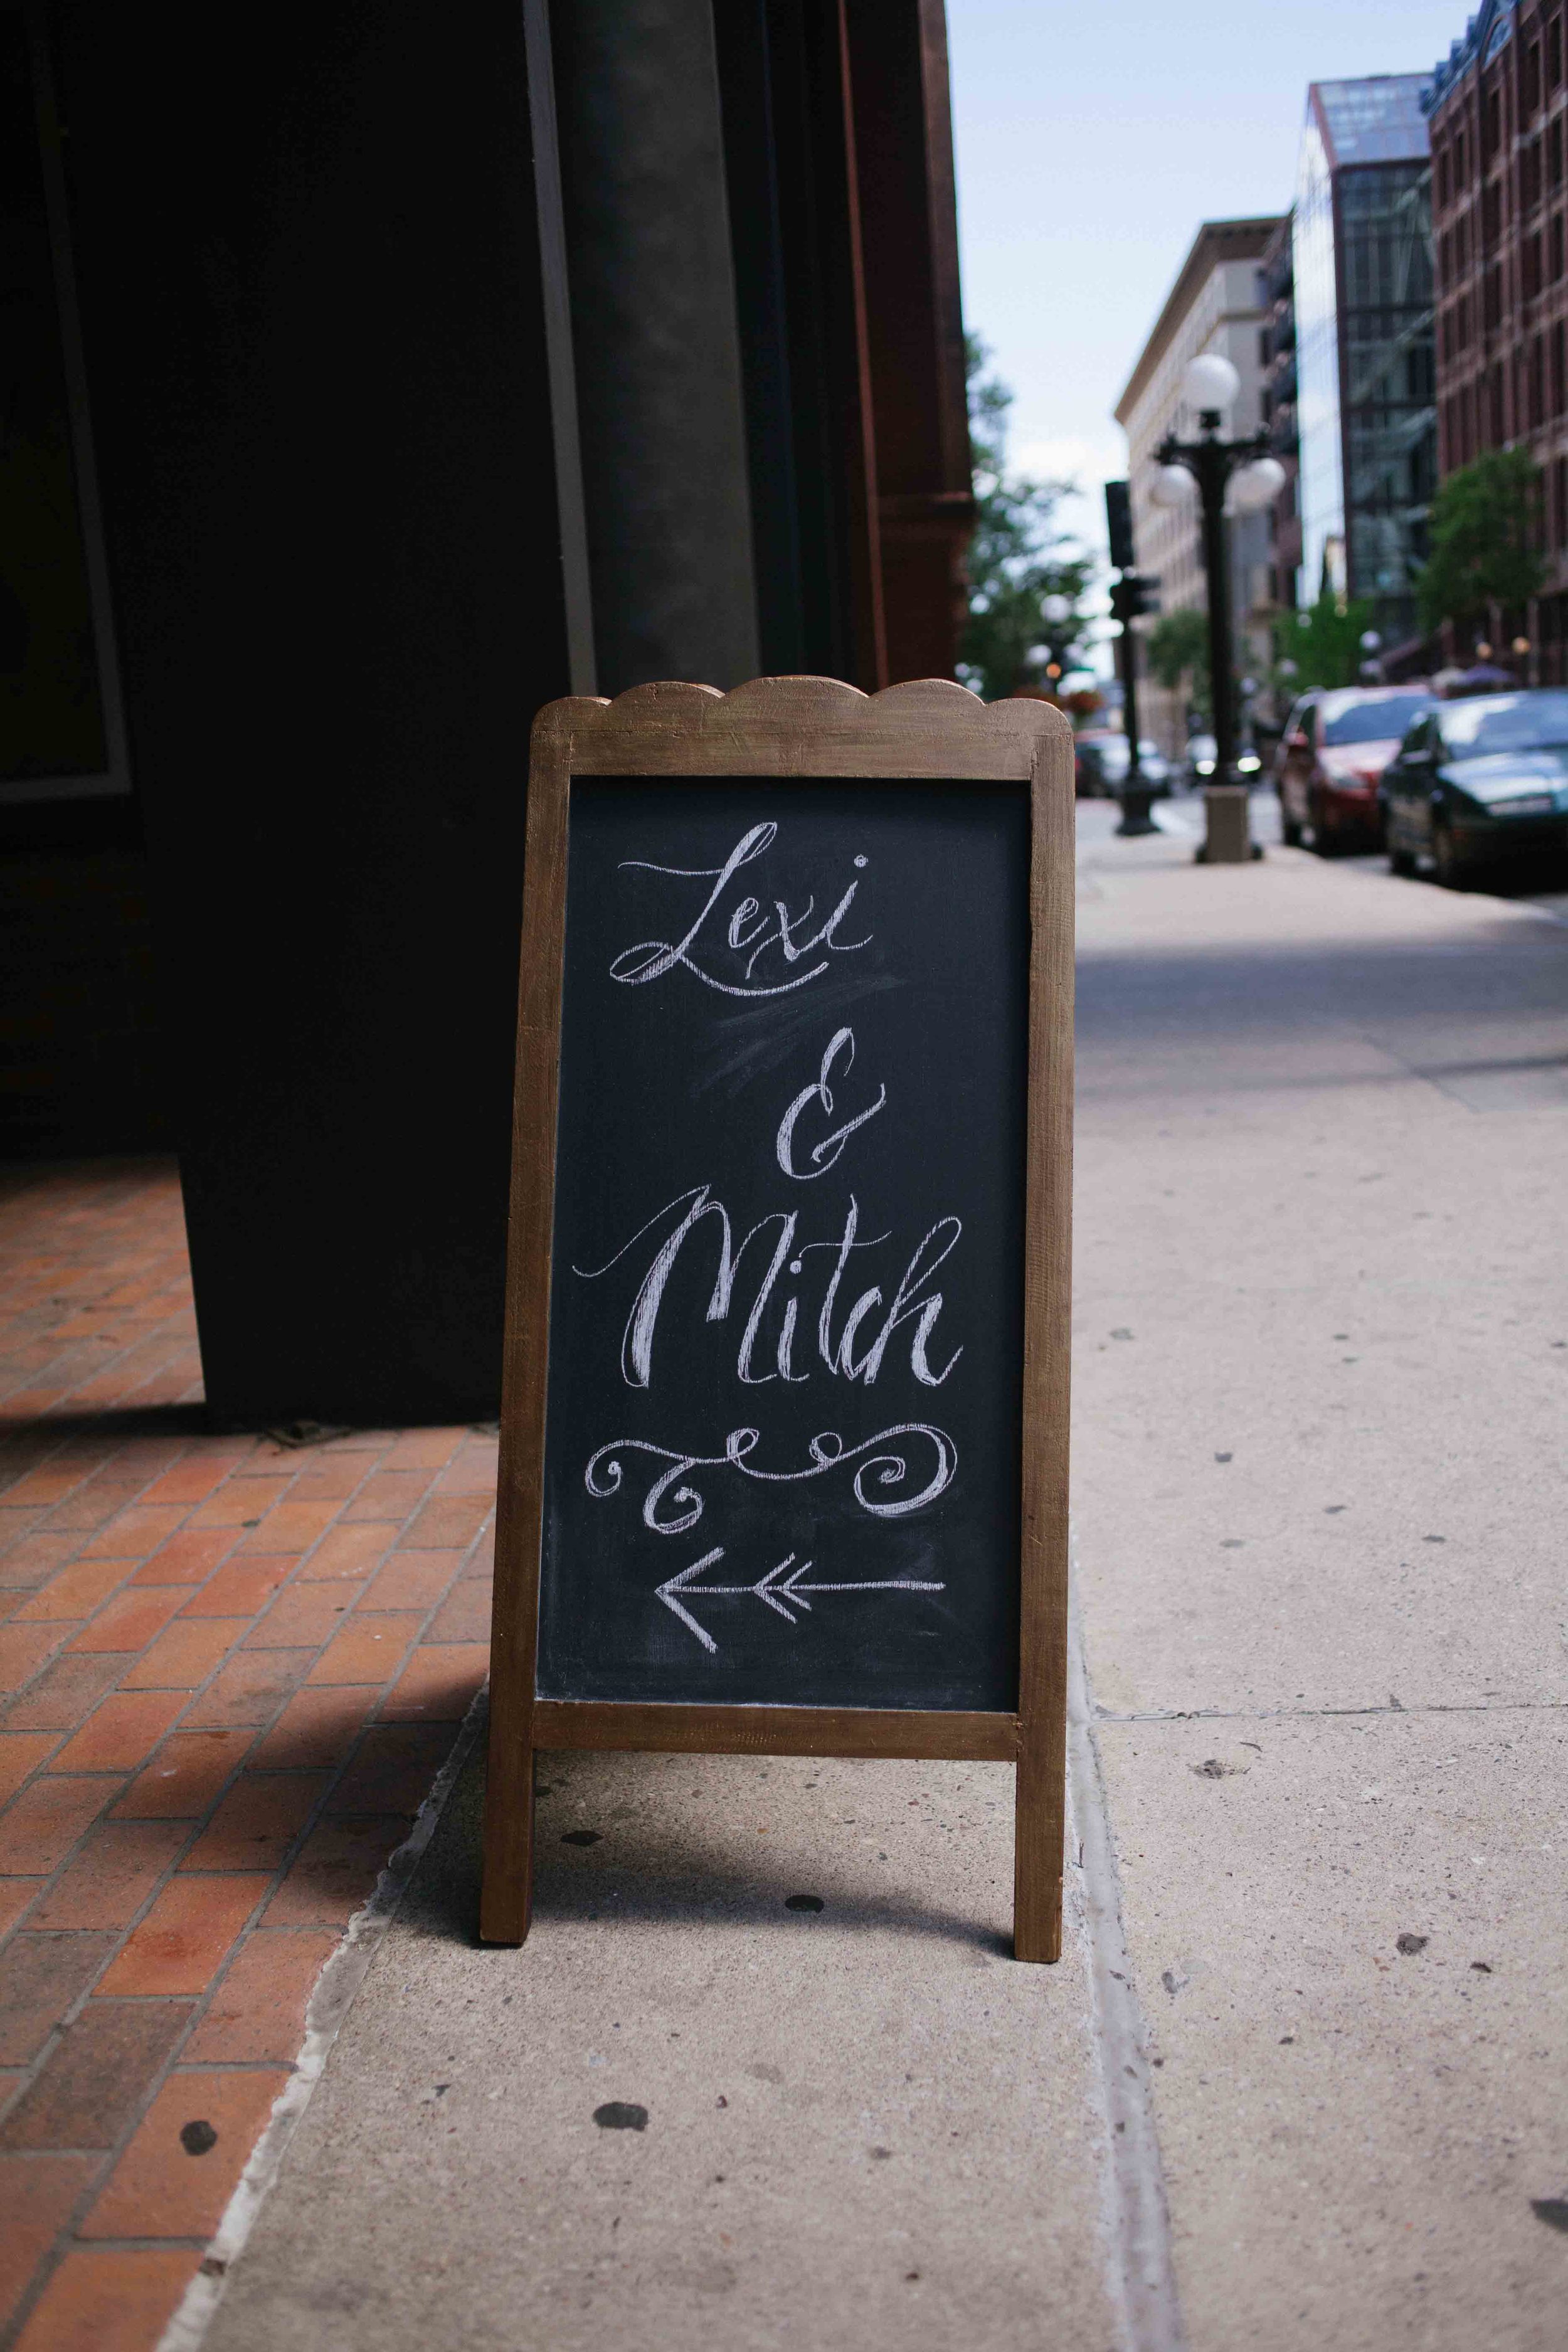 Lexi
&
Mitch